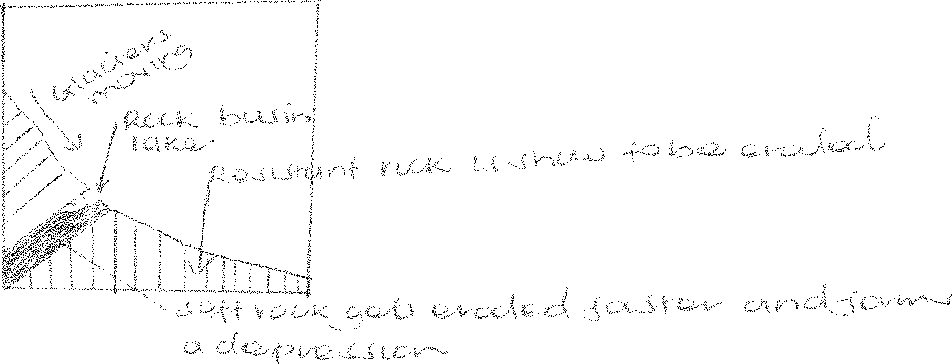 Glaciers
moving
Rock basin
lake
Resistant rock is slow to be eroded
soft rock gets eroded faster and form
a depression